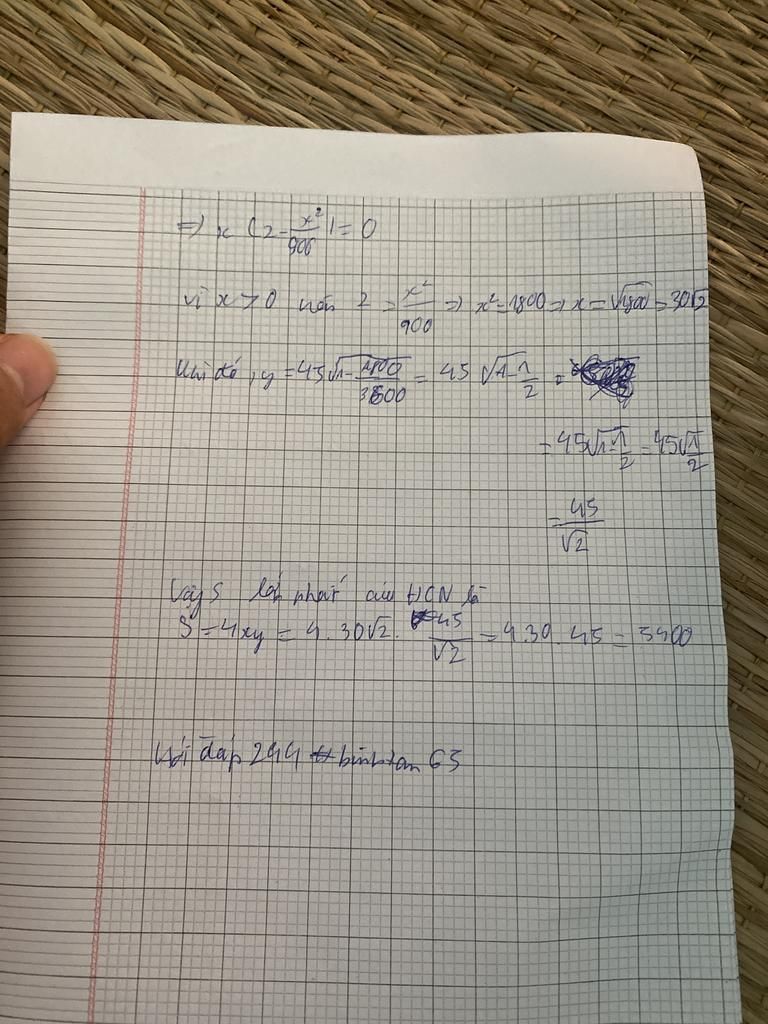 => x (2 - x²/900) = 0
vì x > 0 nên 2 = x²/900 => x² = 1800 => x = √1800 = 30√2
Khi đó, y = 45√1 - 1800/3600 = 45 √1 - 1/2 =
= 45√1 - 1/2 = 45√1/2
= 45/√2
Vậy S lớn nhất của HCN là
S = 4xy = 4 . 30√2 . 45/√2 = 4.30 . 45 = 5400
đáp 244 bình tan 63